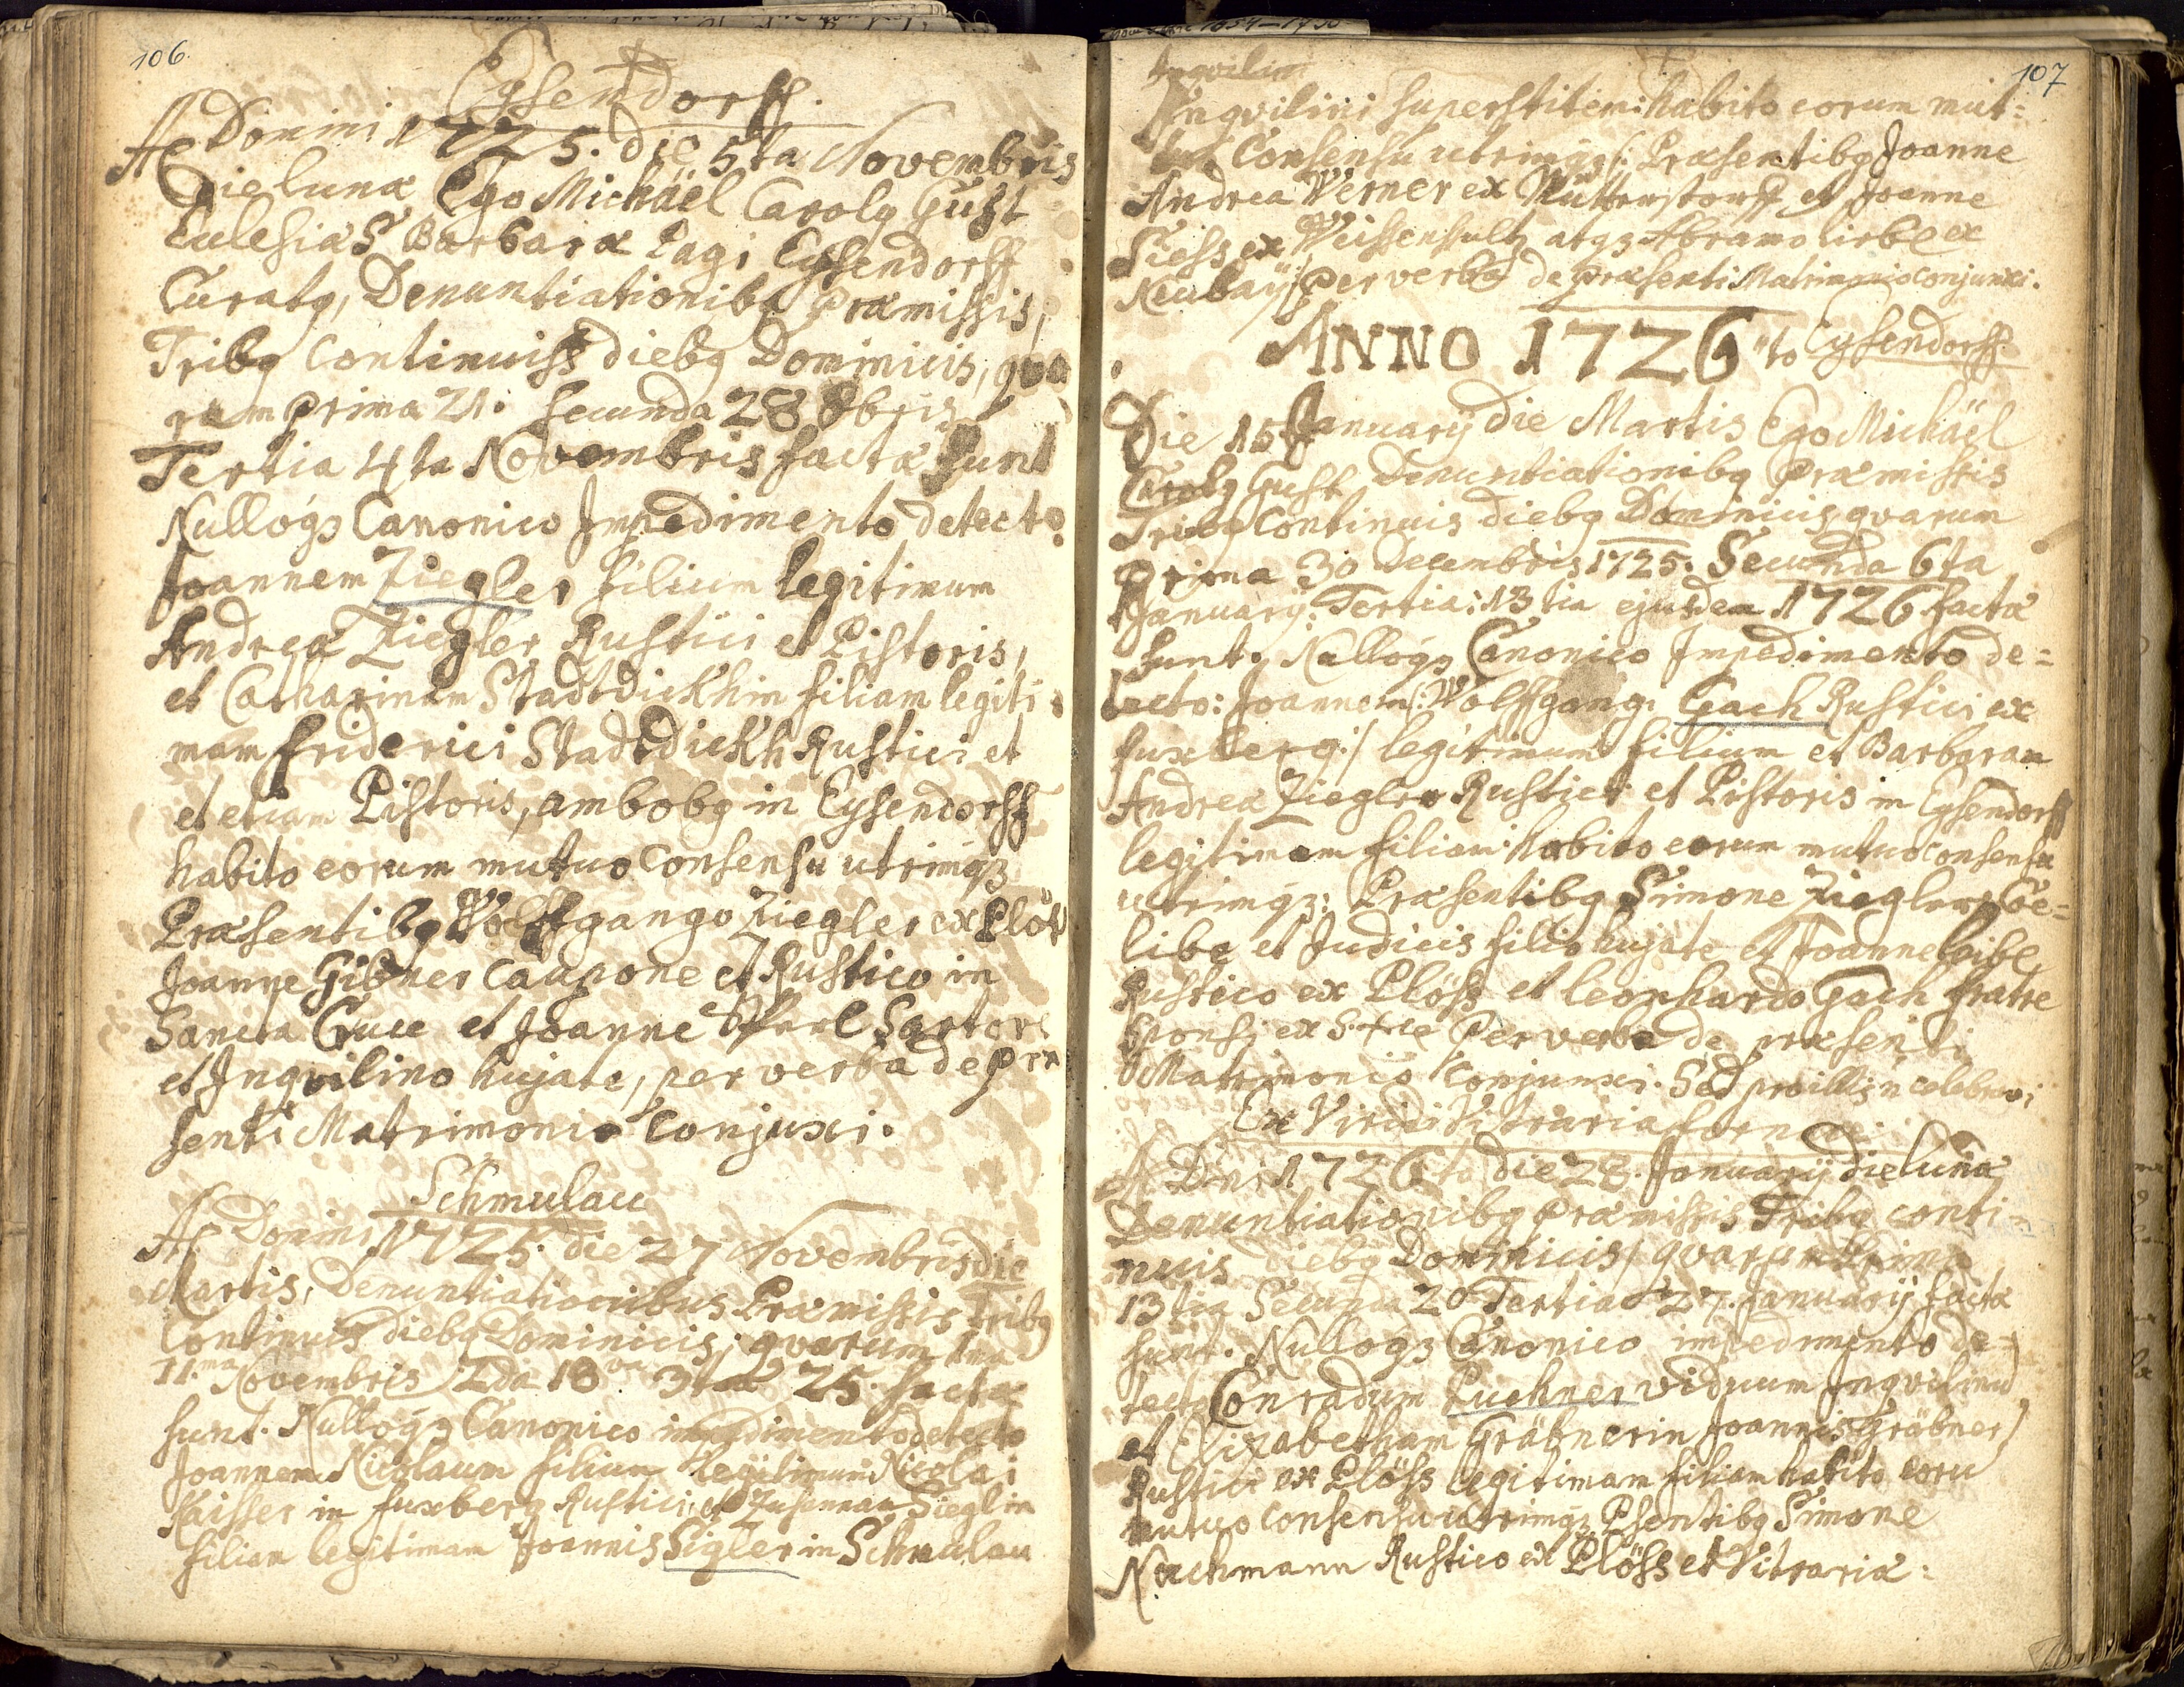 106.
Eysendorff.
Ao Domini 1725. die 5ta Novembris
Die lunæ Ego Michäel Carolq Gust
Eclesiæ S Barbaræ Pagi Eysendorff
Curatq, Denuntiationibq Præmissis,
Tribq Continuis diebq Dominicis, qua
rum prima 21. Secunda 28 8bris
Tertia 4ta Novembris factæ sunt
Nulloqз Canonico Impedimento detecto:
Joannem Ziegler filium legitimum
Andreæ Ziegler Rustici et Pistoris,
et Catharinam Stadtdickhin filiam legiti:
mam friderici Stadtdickh Rustici et
et etiam Pistoris, ambobq in Eysendorff
habito eorum mutuo Consensu utrimqз
Præsentibq Wolffgango Ziegler ex Plöß
Joanne Gibner Caupone et Rustico in
Sancta Cruce et Joanne Sartore
et Inqvilino hujate, per verba de præ
senti Matrimonio Conjuxi.
Schmulau
Ao Domini 1725. die 27 Novembris die
Martis, Denuntiationibus Præmissis Tribq
Continuis diebq Dominicis, qvarum 1ma
11.ma Novembris 2da 18va 3tia 25. factæ
sunt. Nulloqз Canonico impedimento detecto
Joannem Nicolaum filium legitimum Nicolai
Kaisser in fuxberg Rustici et Zusannam Sieglin
filiam legitimam Joannis Sigler in Schmulau
107
Inqvilin
Inqvilini superstitem: habito eorum mut=
Consensu utrimqз (: Præsentibq Joanne
Andrea Werner ex Muttersdorff et Joanne
Siess ex Weissensultz atqз Abramo lirbl ex
Neubaÿ:/ Per verba de præsenti Matrimonio conjunxi.
ANNO 1726to Eysendorff.
Die 15 Januarÿ die Martis Ego Michäel
Carolq Gust Denuntiationibq Præmissis
Tribq Continuis diebq Dominicis qvarum
Prima 30 Decembris 1725. Secunda 6ta
Januarÿ. Tertia: 13tia ejusdem 1726 factæ
sunt. Nulloqз Canonico Impedimento de=
tecto: Joannem (: Wolffgangi Gach Rustici ex
fuxberg:/ legitimum filium et Barbaram
Andreæ Ziegler Rustici et Pistoris in Eysendorff
legitimam filiam: habito eorum mutuo consensu
utrimqз: Præsentibq Simone Ziegler Cœ=
libe et Judicis filio hujate et Joanne laibl
Rustico ex Plöss et leonhardo Gach fratre
Sponsi ex S. +ce Per verba de præsenti
Matrimonio Conjunxi. Sed pro illis n celebravi
Ex Viridi Vitraria fornace
A Dni 1726to die 28. Januarÿ die lunæ
Denuntiationibq Præmissis Tribq conti
nuis diebq Dominicis/ qvarum Prima
13tia Secunda 20 Tertia 27. Januarÿ factæ
sunt. Nulloqз Canonico impedimento de=
tecto Conradum Puchner viduum Inqvilinū
et Elizabetham Gräbnerin Joannis Gräbner
Rustici ex Plöss legitimam filiam habito eorū
mutuo consensu utrimqз Psentibq Simone
Nachmann Rustico ex Plöss et Vitrariæ: